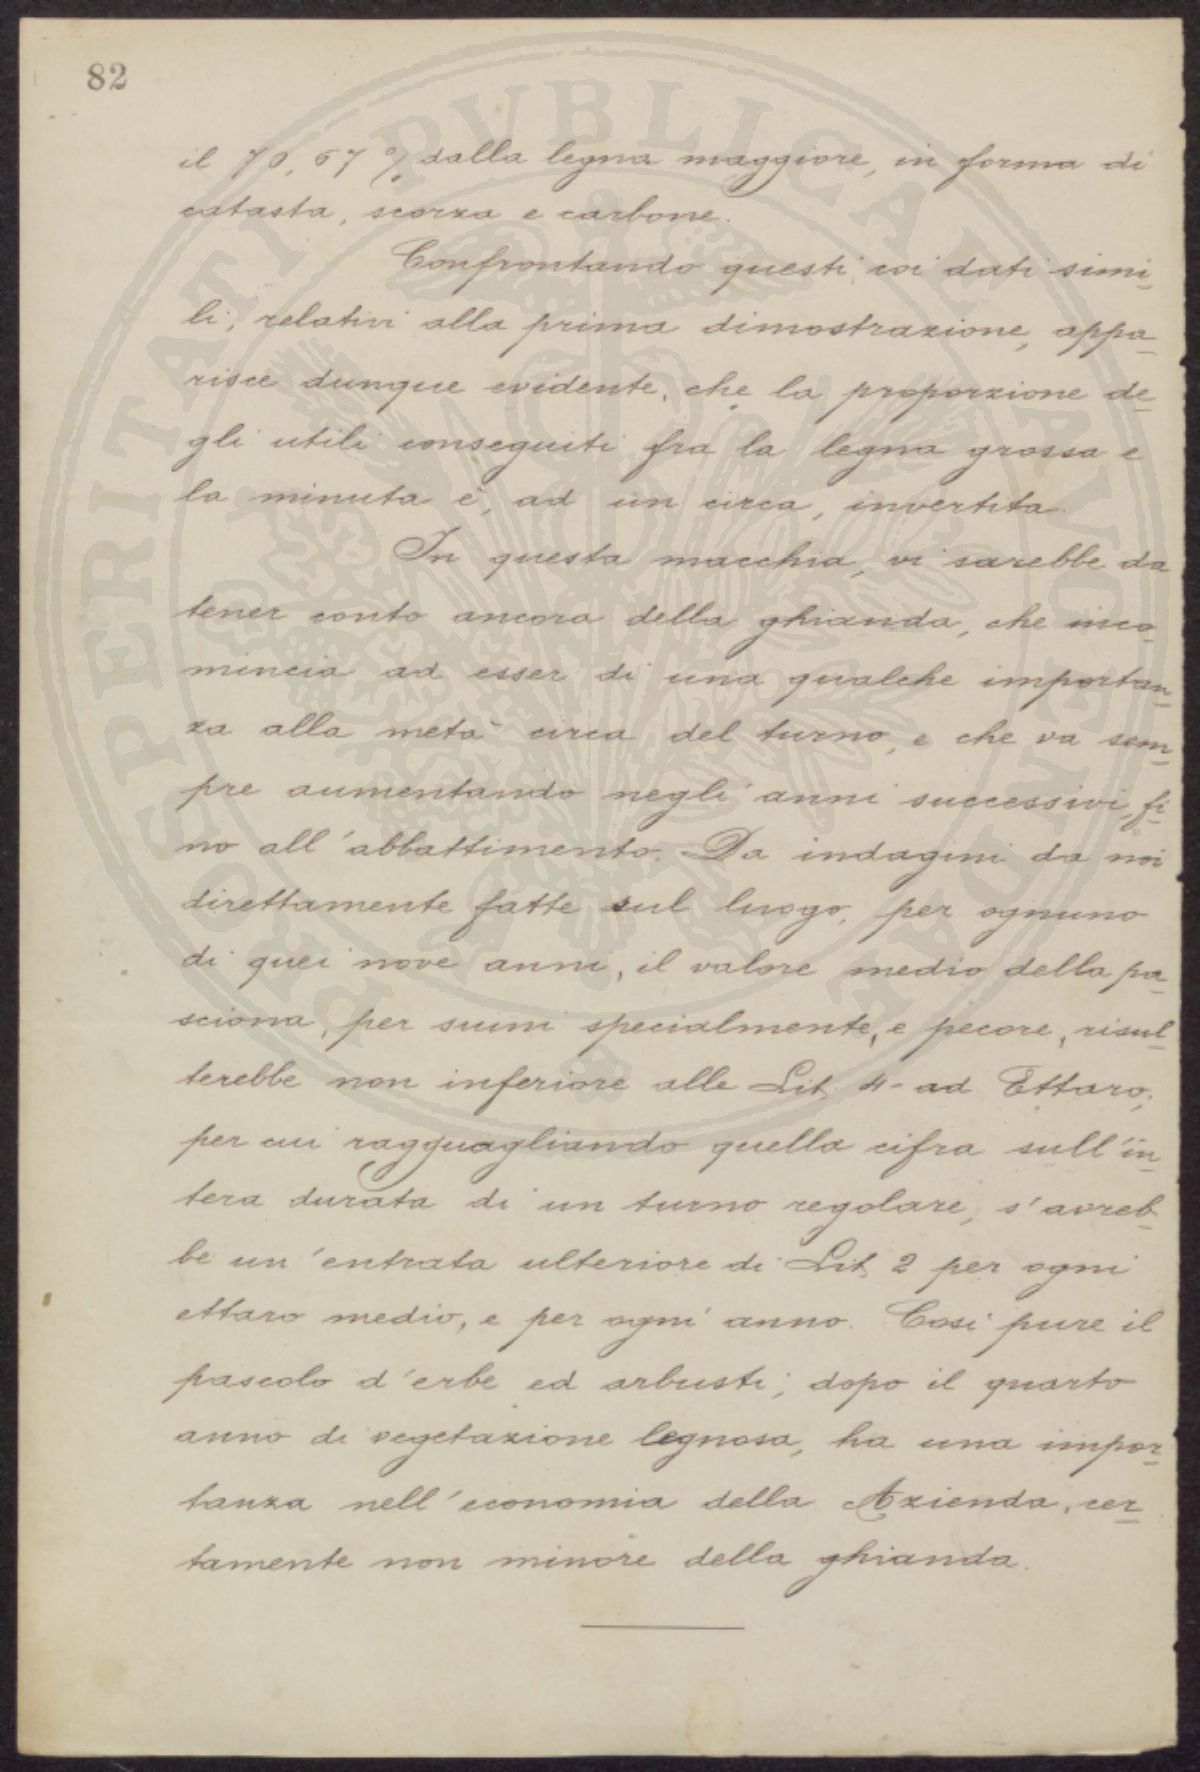 82
il 70,67 % dalla legna maggiore, in forma di
catasta, scorza e carbone.
Confrontando questi, coi dati simi-
li, relativi alla prima dimostrazione, appa-
risce dunque evidente, che la proporzione de-
gli utili conseguiti fra la legna grossa e
la minuta è, ad un circa, invertita.
In questa macchia, vi sarebbe da
tener conto ancora della ghianda, che inco-
mincia ad esser di una qualche importan-
za alla metà circa del turno, e che va sem-
pre aumentando negli anni successivi, fi-
no all'abbattimento. Da indagini da noi
direttamente fatte sul luogo, per ognuno
di quei nove anni, il valore medio della pa-
sciona, per suini specialmente, e pecore, risul-
terebbe non inferiore alle Lit. 4- ad Ettaro;
per cui ragguagliando quella cifra sull'in-
tera durata di un turno regolare, s'avreb-
be un'entrata ulteriore di Lit. 2 per ogni
ettaro medio, e per ogni anno. Cosi pure il
pascolo d'erbe ed arbusti, dopo il quarto
anno di vegetazione legnosa, ha una impor-
tanza nell'economia della Azienda, cer-
tamente non minore della ghianda.
PROSPERITATI PVBLICAE AVGENDAE